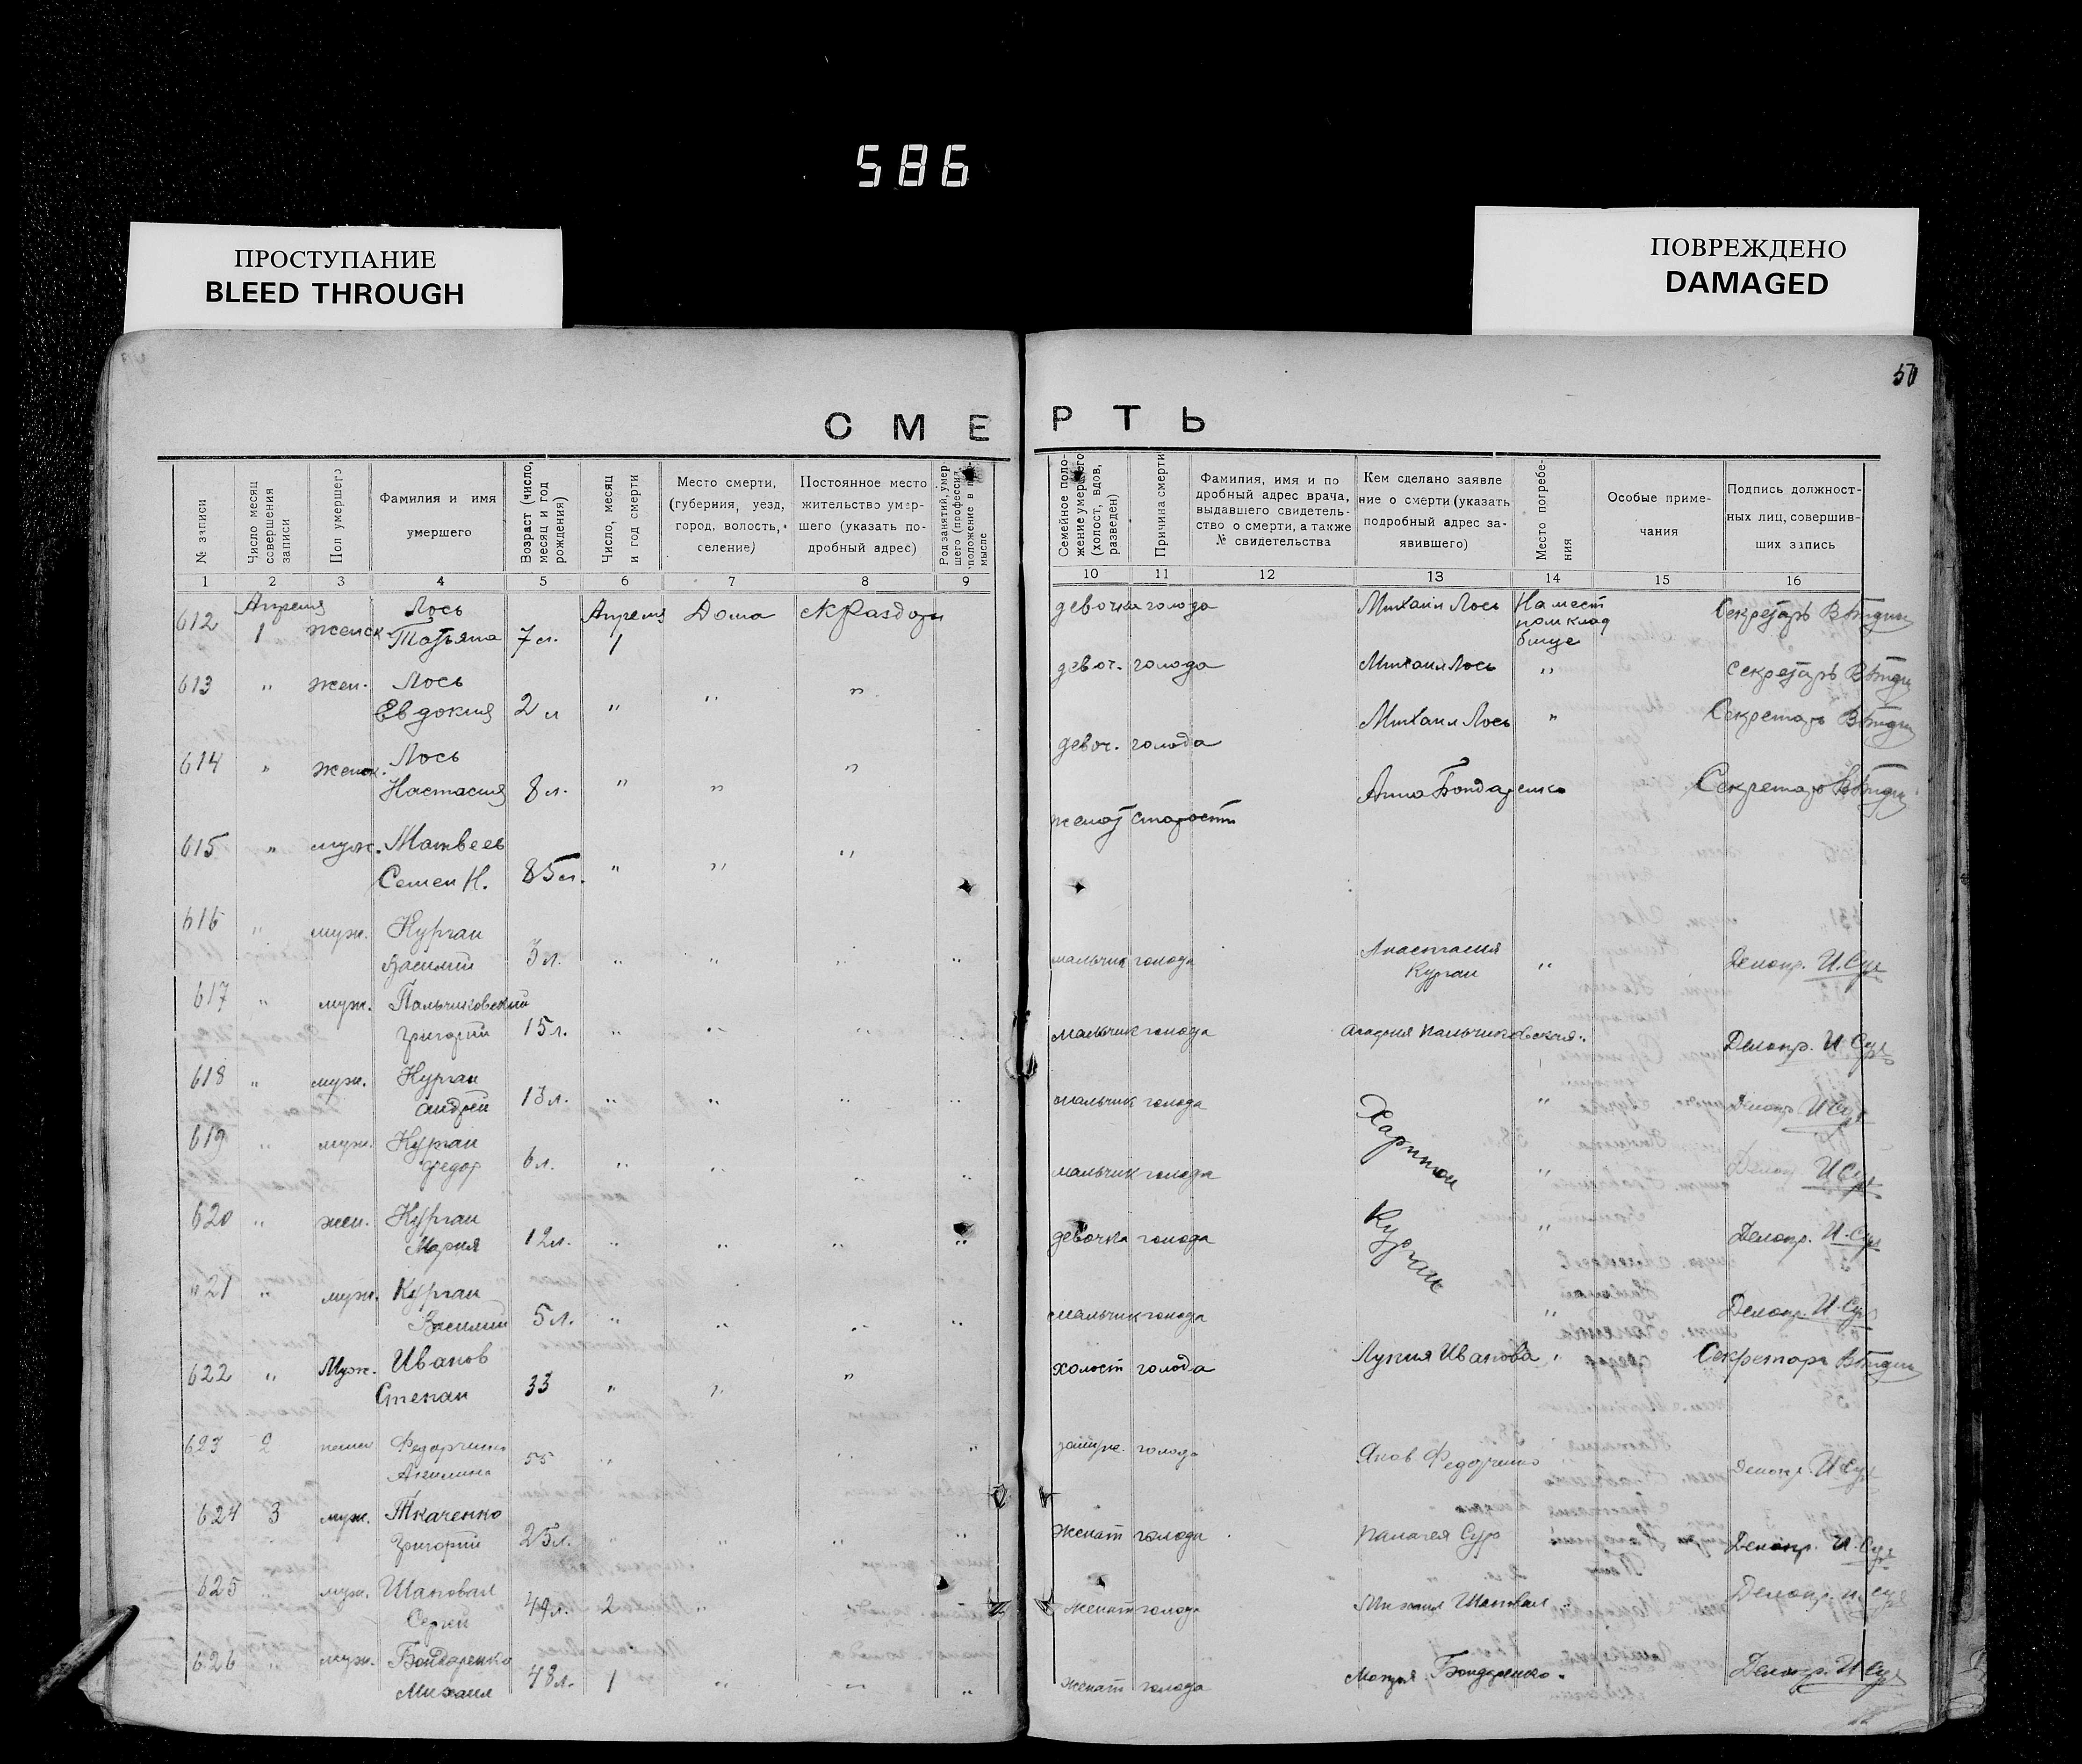 586
ПРОСТУПАНИЕ
BLEED THROUGH
ПОВРЕЖДЕНО
DAMAGED
СМЕРТЬ
№ записи
Число месяц совершения записи
Пол умершего
Фамилия и имя умершего
Возраст (число, месяц и год рождения)
Число, месяц и год смерти
Место смерти, (губерния, уезд, город, волость, селение)
Постоянное место жительство умершего (указать подробный адрес)
Род занятий, умершего (профессия, положение в промысле
Семейное положение умершего (холост, вдов, разведен)
Причина смерти
Фамилия, имя и подробный адрес врача, выдавшего свидетельство о смерти, а также № свидетельства
Кем сделано заявление о смерти (указать подробный адрес заявившего)
Место погребения
Особые примечания
Подпись должностных лиц, совершивших запись
1 2 3 4 5 6 7 8 9 10 11 12 13 14 15 16
612 Апреля 1 женск Лось Татьяна 7 л. Апреля 1 Дома девочка голода Михаил Лось На мест ном клад бище Секретарь
613 " жен. Лось Евдокия 2 л " " " девоч. голода Михаил Лось " Секретарь
614 " женск. Лось Настасия 8 л. " " " девоч. голода Михаил Лось " Секретарь
615 " муж. Матвеев Семен Н. 85 л. " " " женат старости Анна Бондаренко Секретарь
616 " муж. Курган Василий 3 л. " " " " мальчик голода Анастасия Курган " Делопр. И. Сур
617 " муж. Пальчиковский Григорий 15 л. " " " мальчик голода Пальчиковская Делопр. И Сур
618 " муж. Курган Андрей 13 л. " " " " мальчик голода Харитон Курган " Делопр. И Сур
619 " муж. Курган Федор 6 л. " " " " мальчик голода " Делопр И Сур
620 " жен. Курган Мария 12 л. " " " " девочка голода " Делопр. И. Сур
621 " муж. Курган Василий 5 л. " " " " мальчик голода " Делопр. И. Сур
622 " Муж. Иванов Степан 33 " " " холост голода Иванова " Секретарь
623 2 Федорченко Акилина 55 " " " " голода Яков Федорченко Делопр. И Сур
624 3 муж. Ткаченко Григорий 25 л. " " " " женат голода Сур Делопр. И. Сур
625 " муж. Шаповал Сергей 49 л. 2 " " женат голода Михаил Шаповал Делопр. И. Сур
626 " муж. Бондаренко Михаил 48 л. 1 " " " женат голода Бондаренко. Делопр. И Сур